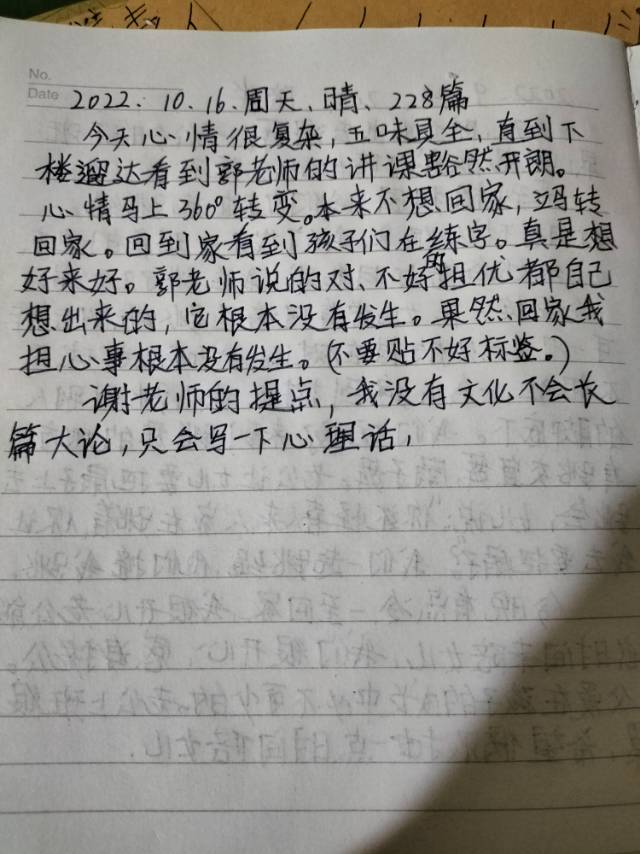 No.
Date 2022.10.16.周天、晴、228篇
今天心情很复杂,五味具全,直到下
楼遛达看到郭老师的讲课豁然开朗。
心情马上360°转变。本来不想回家,立马转
回家。回到家看到孩子们在练字。真是想
好来好。郭老师说的对、不好的担优都自己
想出来的,它根本没有发生。果然回家我
担心事根本没有发生。(不要贴不好标签。)
谢老师的提点,我没有文化不会长
篇大论,只会写一下心理话,